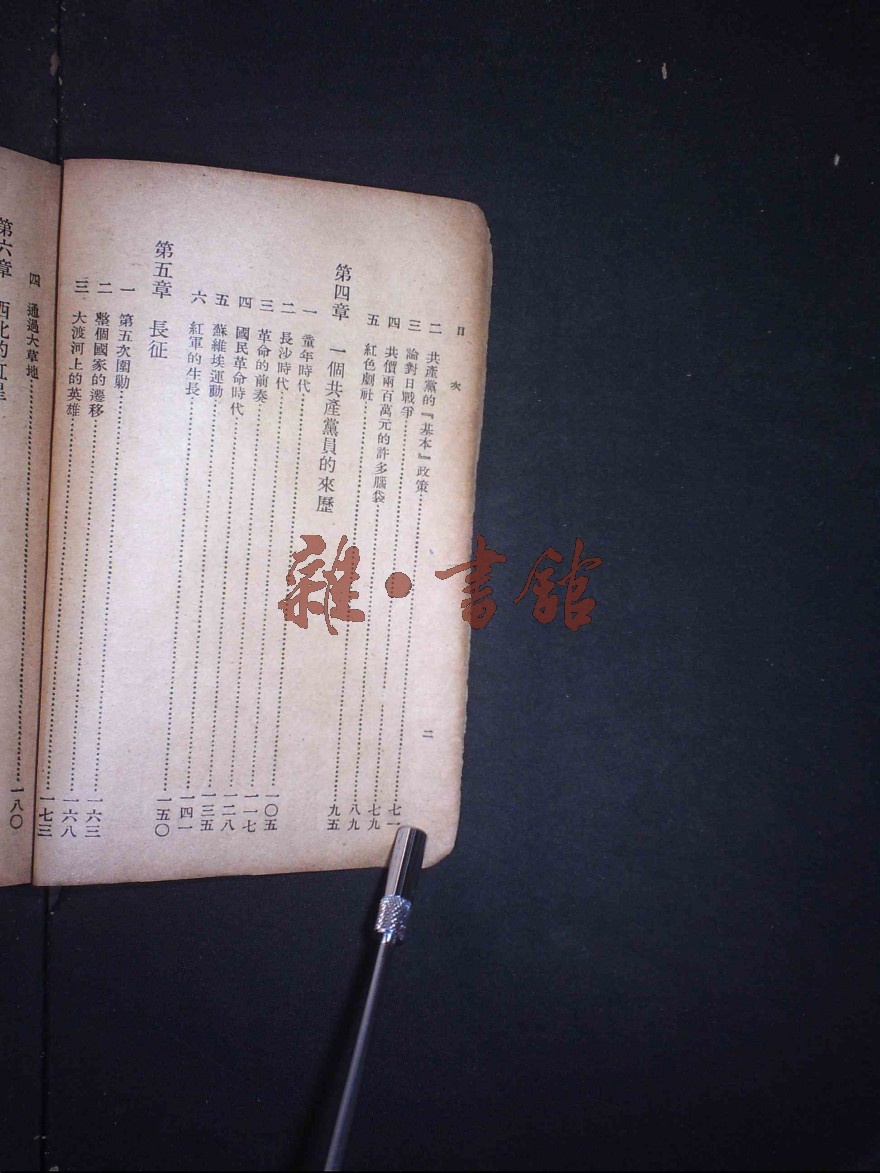 目次 二
二 共產黨的『基本』政策
三 論對日戰爭 七一
四 共價兩百萬元的許多腦袋 七九
五 紅色劇社 八九
第四章 一個共產黨員的來歷
一 童年時代 九五
二 長沙時代 一〇五
三 革命的前奏 一一七
四 國民革命時代 一二八
五 蘇維埃運動 一三五
六 紅軍的生長 一四一
第五章 長征
一 第五次圍勦 一五〇
二 整個國家的遷移 一六三
三 大渡河上的英雄 一六八
四 通過大草地 一七三
第六章 西北的紅星
一八〇
雜·書館